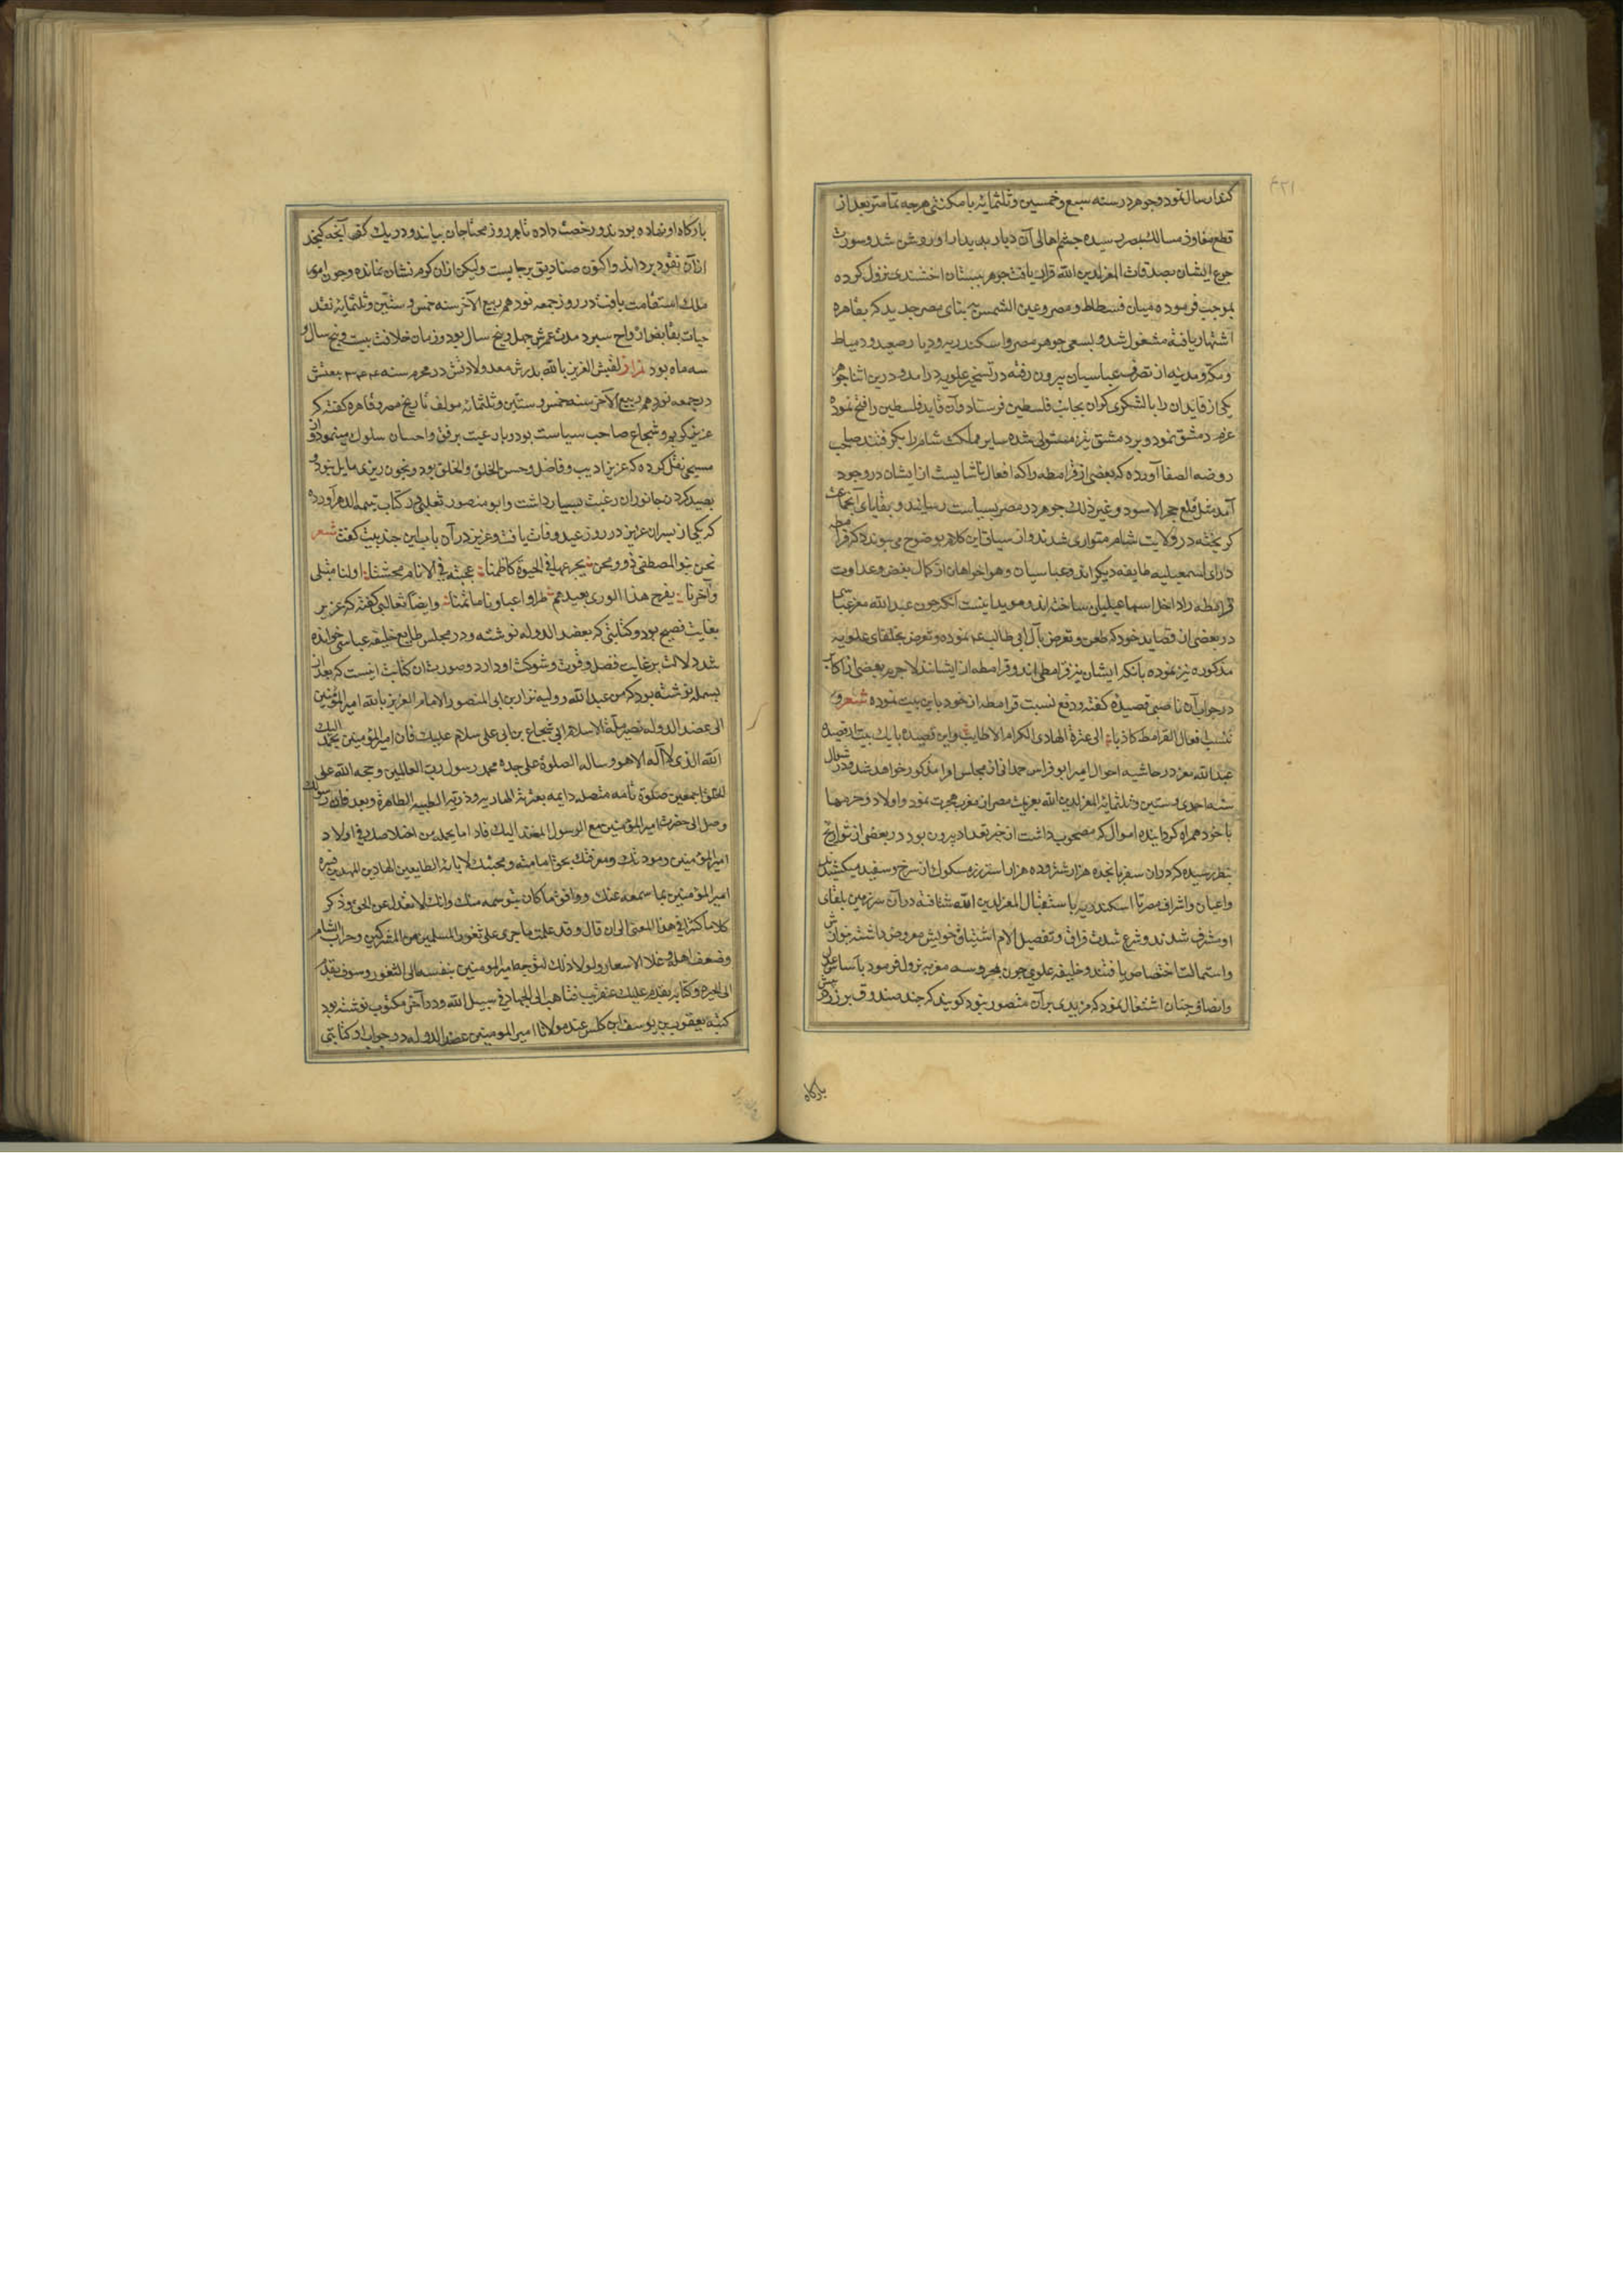 ۴۲۱
کند ارسال نمود و جوهر در سنه سبع و خمسین و ثلثمایه با مکنتی هرچه تمامتر بعد از
قطع مفاوز و مسالک بمصر رسیده چشم اهالی آن دیار بدیدار او روشن شد و سورت
جوع ایشان بصدقات المعزلدین الله قرار یافت جوهر ببستان اخشیدی نزول کرده
بموجب فرموده میان فسطاط و مصر و عین الشمس به بنای مصر جدید که بقاهره
اشتهار یافته مشغول شد و بسعی جوهر مصر و اسکندریه و دیار صعید و دمیاط
و مکه و مدینه از تصرف عباسیان بیرون رفته در تسخیر علویه درآمد و درین اثنا جوهر
یکی از قایدان را با لشکری کران بجانب فلسطین فرستاد و آن قاید فلسطین را فتح نموده
عزم دمشق نمود و بر دمشق نیز مستولی شده سایر مملکت شام را بکرفتند صاحب
روضه الصفا آورده که بعضی از قرامطه را که افعال ناشایست از ایشان در وجود
آمد مثل قلع حجر الاسود و غیر ذلک جوهر در مصر بسیاست رسانید و بقایای آنجماعت
کریخته در ولایت شام متواری شدند و از سیاق این کلام بوضوح می پیوندد که قرامطه
دارای اسمعیلیه طایفه دیکراند و عباسیان و هواخواهان از کمال بغض و عداوت
قرامطه را داخل اسماعیلیان ساخته اند و موید اینست آنکه چون عبدالله معتز عباسی
در بعضی از قصاید خود که طعن و تعرض بآل ابی طالب نموده و تعرض بخلفای علویه
مذکوره نیز نموده بانکه ایشان نیز قرامطی اند و قرامطه از ایشانند لاجرم بعضی از اکابر
در جواب آن ناصبی قصیده کفته و دفع نسبت قرامطه از خود باین بیت نموده شعر
تنسب فعال القرامط کاذبا الی عترة الهادی الکرام الاطایب و این قصیده با یک بیت از قصیده
عبدالله معز در حاشیه احوال امیر ابو فراس حمدانی از مجالس امرا مذکور خواهد شد و در شوال
سنه احدی و ستین و ثلثمایه المعزلدین الله بعزیمت مصر از مغرب هجرت نمود و اولاد و حرمها
با خود همراه کردانیده اموال که مصحوب داشت از حیز تعداد بیرون بود در بعضی از تواریخ
بنظر رسیده که در ان سفر پانجده هزار شتر و ده هزار استر زر مسکوک از سرخ و سفید میکشیدند
و اعیان و اشراف مصر تا اسکندریه باستقبال المعزلدین الله شتافته در آن سرزمین بلقای
او مشرف شدند و شرح شدت فراق و تفصیل الام اشتیاق خویش معروض داشته بنوازش
و استمالت اختصاص یافتند و خلیفه علوی چون بمحروسه معزیه نزول فرمود بآساس عدل
و انصاف چنان اشتغال نمود که مزیدی بر آن متصور نبود کویند که چند صندوق پر زر در پیش
بارکاه
بارکاه او نهاده بودند و رخصت داده تا هر روز محتاجان بیایند و در یک کف آنچه کنجد
از آن نقود بردارند و اکنون صنادیق برجایست ولیکن از ان کرم نشان نمانده و چون امر
ملک استقامت یافت در روز جمعه نوزدهم ربیع الآخر سنه خمس و ستین و ثلثمایه نقد
حیات بقابض ارواح سپرد مدت عمرش چهل و پنج سال بود و زمان خلافت بیست و پنج سال و
سه ماه بود نزار لقبش العزیز بالله پدرش معد ولادتش در محرم سنه ۳۴۴ بیعتش
در جمعه نوزدهم ربیع الآخر سنه خمس و ستین و ثلثمایه مولف تاریخ مصر و قاهره کفته که
عزیز کریم و شجاع صاحب سیاست بود و با رعیت برفق و احسان سلوک مینمود و از
مسبحی نقل کرده که عزیز ادیب و فاضل و حسن الخلق و الخلق بود و بخون ریزی مایل نبود و
بصید کردن جانوران رغبت بسیار داشت و ابو منصور ثعلبی در کتاب یتیمه الدهر آورده
که یکی از پسران عزیز در روز عید وفات یافت و عزیز در آن باب این چند بیت کفت شعر
نحن بنو المصطفی ذوو محن یجرعها فی الحیوة کاظمنا عجیبة فی الانام محنتنا اولنا مبتلی
و آخرنا یفرح هذا الوری بعیدهم طرا و اعیادنا ماتمنا و ایضا ثعالبی کفته که عزیز
بغایت فصیح بود و کتابتی که بعضد الدوله نوشته و در مجلس طایع خلیفه عباسی خوانده
شد دلالت بر غایت فضل و قوت و شوکت او دارد و صورت ان کتابت اینست که بعد از
بسمله نوشته بود که من عبدالله و ولیه نزار بن ابی المنصور الامام العزیز بالله امیر المؤمنین
الی عضد الدوله نصیر ملة الاسلام ابی شجاع بن ابی علی سلام علیک فان امیر المؤمنین یحمد الیک
الله الذی لا آله الا هو و ساله الصلوة علی جده محمد رسول رب العالمین و حجه الله علی
الخلق اجمعین صلوة نامه متصله دایمه بعترته الهادیه و ذریته الطیبه الطاهرة و بعد فان رسولک
وصل الی حضرت امیر المؤمنین مع الرسول المنفذ الیک فاد اما یحمد من اخلاصک فی اولاد
امیر المؤمنین و مودتک و معرفتک بحق امامته و محبتک لابائه الطایعین الهادین المهدیین فسره
امیر المؤمنین بما سمعه عنک و وافق ما کان یتوسمه منک و انک لا تعدل عن الحق و ذکر
کلاما کثیرا فی هذا المعنی الی ان قال و قد علمت ما جری علی ثغور المسلمین من المشرکین و خراب الشام
و ضعف اهله و غلا الاسعار و لولا ذلک لتوجه امیر المومنین بنفسه الی الثغور و سوف یقدم
الی الحیرة و کتابه یقدم علیک عنقریب فتاهب الی الجهاد فی سبیل الله و در آخر مکتوب نوشته بود
کتبه یعقوب بن یوسف ابن کلس عند مولانا امیر المومنین عضد الدوله در جواب او کتابتی